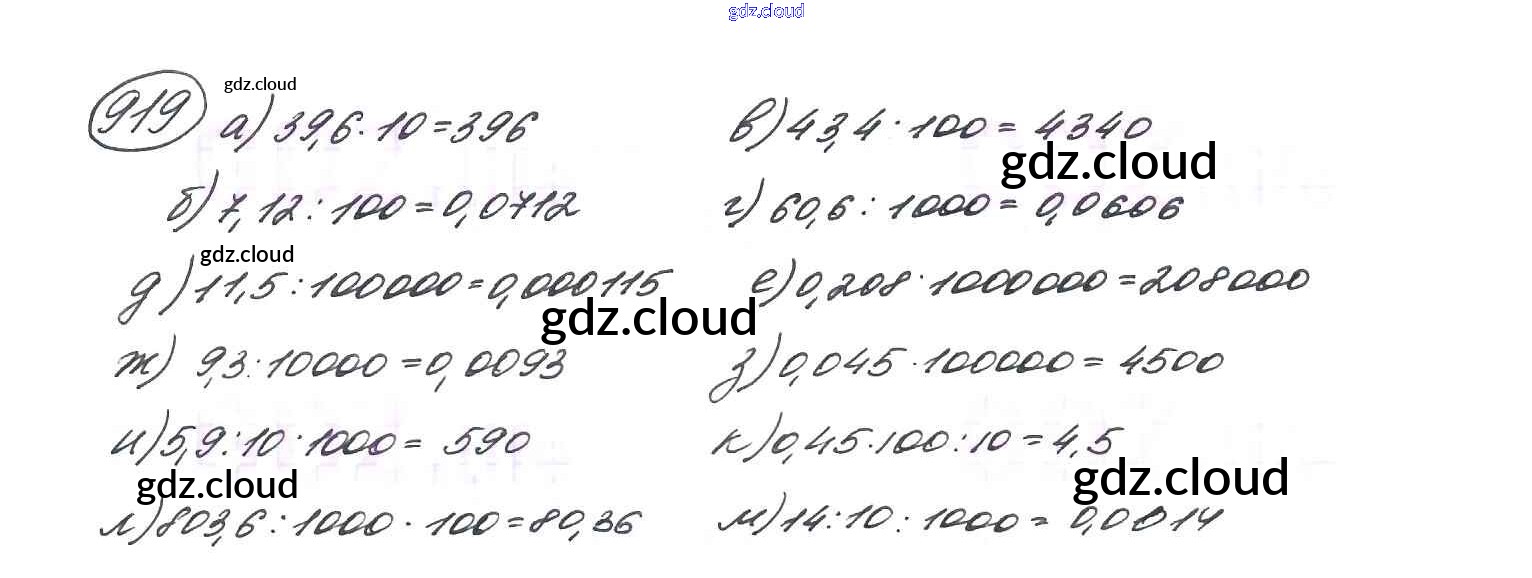 gdz.cloud
919 gdz.cloud
а) 39,6 · 10 = 396 в) 43,4 · 100 = 4340
gdz.cloud
б) 7,12 : 100 = 0,0712 г) 60,6 : 1000 = 0,0606
gdz.cloud
д) 11,5 : 100000 = 0,000115 е) 0,208 · 1000000 = 208000
gdz.cloud
ж) 9,3 : 10000 = 0,0093 з) 0,045 · 100000 = 4500
и) 5,9 : 10 · 1000 = 590 к) 0,45 · 100 : 10 = 4,5
gdz.cloud gdz.cloud
л) 803,6 : 1000 · 100 = 80,36 м) 14 : 10 : 1000 = 0,0014